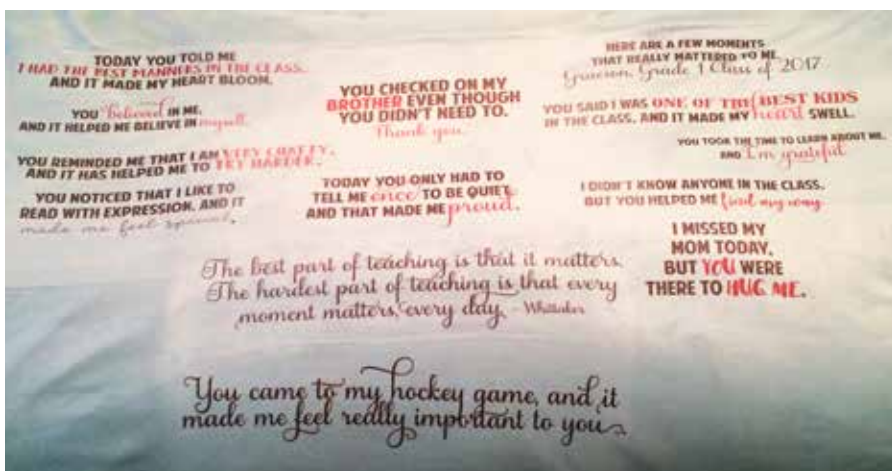 TODAY YOU TOLD ME
I HAD THE BEST MANNERS IN THE CLASS.
AND IT MADE MY HEART BLOOM.
YOU believed IN ME.
AND IT HELPED ME BELIEVE IN myself.
YOU REMINDED ME THAT I AM VERY CHATTY.
AND IT HAS HELPED ME TO TRY HARDER.
YOU NOTICED THAT I LIKE TO
READ WITH EXPRESSION. AND IT
made me feel special.
YOU CHECKED ON MY
BROTHER EVEN THOUGH
YOU DIDN'T NEED TO.
Thank you.
TODAY YOU ONLY HAD TO
TELL ME once TO BE QUIET,
AND THAT MADE ME proud.
HERE ARE A FEW MOMENTS
THAT REALLY MATTERED TO ME.
Grade 1 Class of 2017
YOU SAID I WAS ONE OF THE BEST KIDS
IN THE CLASS, AND IT MADE MY heart SWELL.
YOU TOOK THE TIME TO LEARN ABOUT ME,
AND I'm grateful.
I DIDN'T KNOW ANYONE IN THE CLASS,
BUT YOU HELPED ME find my way.
I MISSED MY
MOM TODAY,
BUT YOU WERE
THERE TO HUG ME.
The best part of teaching is that it matters.
The hardest part of teaching is that every
moment matters, every day. - Whittaker
You came to my hockey game, and it
made me feel really important to you.